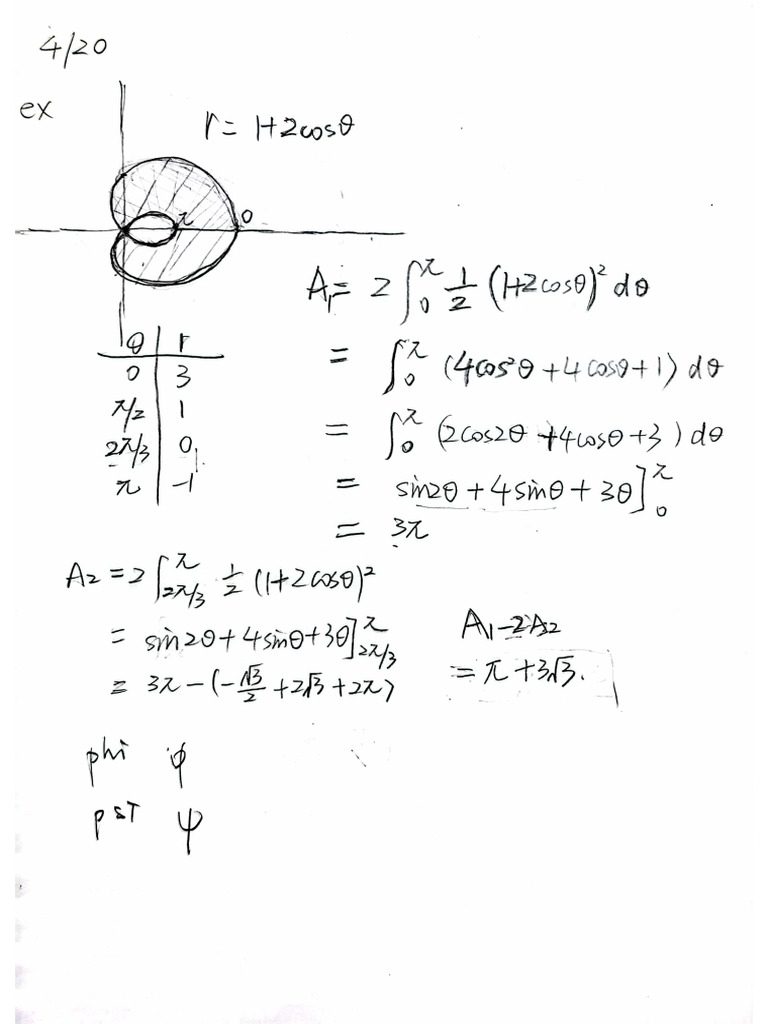 4/20
ex
r = 1+2cosθ
π 0
A₁ = 2∫₀^π 1/2 (1+2cosθ)² dθ
= ∫₀^π (4cos²θ + 4cosθ + 1) dθ
= ∫₀^π (2cos2θ + 4cosθ + 3) dθ
= sin2θ + 4sinθ + 3θ]₀^π
= 3π
θ | r
0 | 3
π/2 | 1
2π/3 | 0
π | -1
A₂ = 2∫_{2π/3}^π 1/2 (1+2cosθ)²
= sin2θ + 4sinθ + 3θ]_{2π/3}^π
= 3π - (-√3/2 + 2√3 + 2π)
A₁ - 2A₂
= π + 3√3.
phi φ
psi ψ